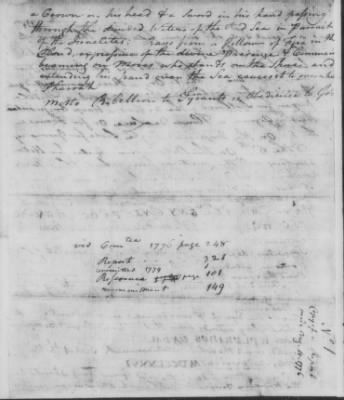 a Crown on his head & a Sword in his hand passing
through the divided Waters of the Red Sea in Pursuit
of the Israelites: Rays from a Pillow of Fire in the
Cloud, expressive of the divine Presence, & Command
beaming on Moses who stands on the Shore and
extending his hand over the Sea causes it to
Pharaoh
Motto Rebellion to Tyrants is Obedience to God
1776 page 248
Report 321
1779
Reference page 101
recommitment 149
No 1